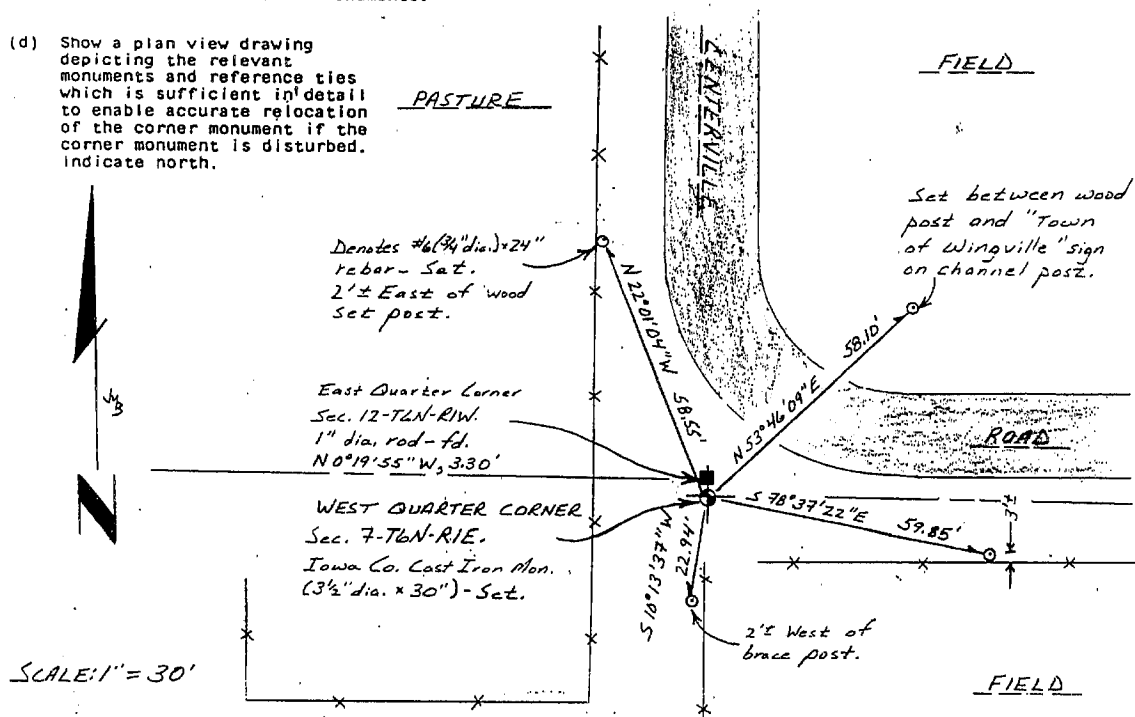 (d) Show a plan view drawing
depicting the relevant
monuments and reference ties
which is sufficient in detail
to enable accurate relocation
of the corner monument if the
corner monument is disturbed.
Indicate north.
PASTURE
CENTERVILLE
FIELD
Set between wood
post and "Town
of Wingville" sign
on channel post.
Denotes #6(3/4"dia.)×24"
rebar - Set.
2'± East of wood
Set post.
N 22°01'04"W 58.55'
N 53°46'09"E 58.10'
East Quarter Corner
Sec. 12-T6N-R1W.
1" dia. rod - fd.
N 0°19'55"W, 3.30'
ROAD
WEST QUARTER CORNER
Sec. 7-T6N-R1E.
Iowa Co. Cast Iron Mon.
(3½"dia. × 30") - Set.
S 78°37'22"E 59.85'
3'±
S 10°13'37"W 22.94'
2'± West of
brace post.
N
SCALE: 1" = 30'
FIELD